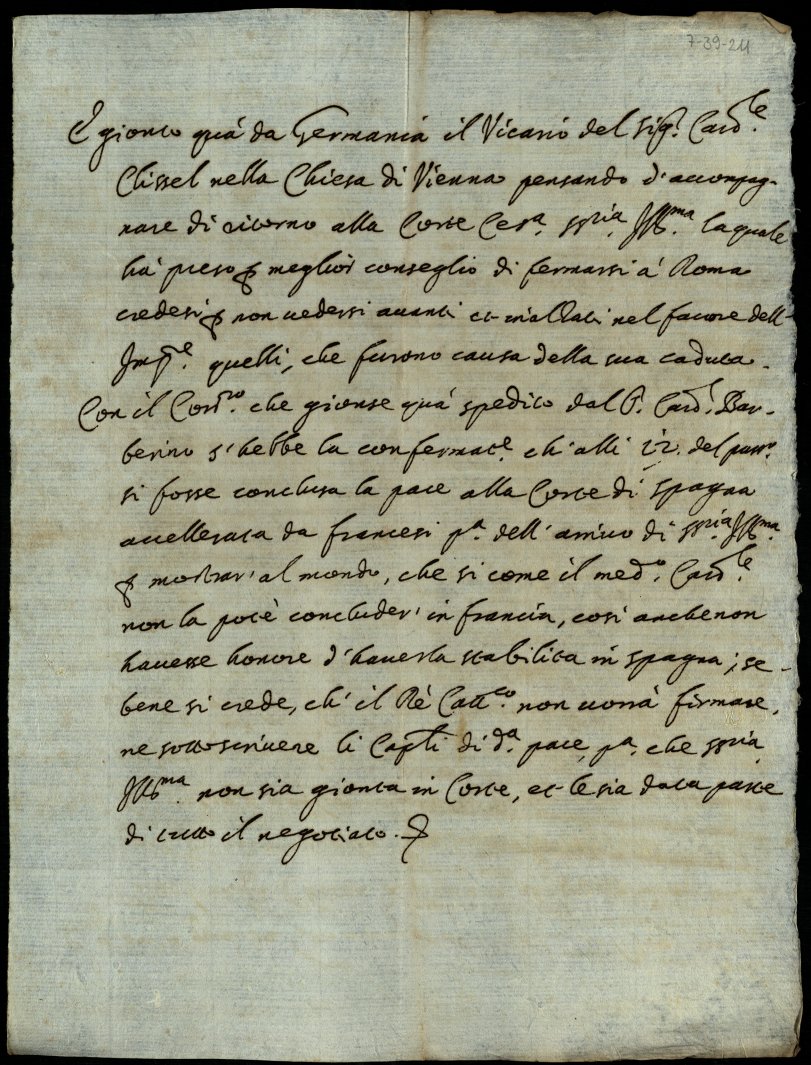 7-39-211
È gionto quà da Germania il Vicario del Sig.r Card.le
Clissel nella Chiesa di Vienna pensando d'accompag-
nare di ritorno alla Corte Ces.a S.ria Ill.ma la quale
hà preso p meglior conseglio di fermarsi à Roma
credesi p non vedersi avanti et inalzati nel favore dell-
Imp.re quelli, che furono causa della sua caduta.
Con il Corr.ro che gionse quà spedito dal S.r Card.l Bar-
berino s'hebbe la confermat.e ch'alli 12. del pass.o
si fosse conclusa la pace alla Corte di Spagna
accellerata da francesi p.a dell'arrivo di S.ria Ill.ma
p mostrar' al mondo, che si come il med.o Card.le
non la potè concluder' in francia, così anche non
havesse honore d'haverla stabilita in Spagna; se-
bene si crede, ch'il Rè Catt.co non vorrà firmare,
ne sottoscrivere li Cap.li di d.a pace, p.a che S.ria
Ill.ma non sia gionta in Corte, et le sia data parte
di tutto il negotiato.